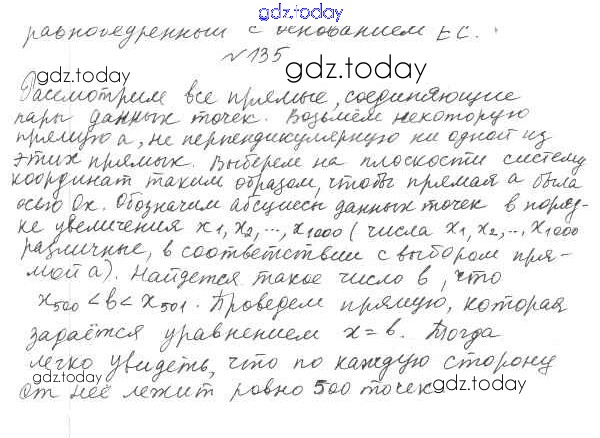 gdz.today
равнобедренный с основанием EC.
№135
gdz.today
Рассмотрим все прямые, соединяющие
gdz.today
пары данных точек. Возьмём некоторую
прямую a, не перпендикулярную ни одной из
этих прямых. Выберем на плоскости систему
координат таким образом, чтобы прямая a была
осью Ox. Обозначим абсциссы данных точек в поряд-
ке увеличения x1, x2, ..., x1000 (числа x1, x2, ..., x1000
различные, в соответствии с выбором пря-
мой a). Найдется такое число b, что
x500 < b < x501. Проведем прямую, которая
задаётся уравнением x = b. Тогда
легко увидеть, что по каждую сторону
gdz.today
от неё лежит ровно 500 точек.
gdz.today